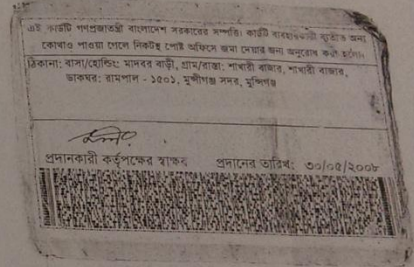 এই কার্ডটি গণপ্রজাতন্ত্রী বাংলাদেশ সরকারের সম্পত্তি। কার্ডটি ব্যবহারকারী ব্যতীত অন্য
কোথাও পাওয়া গেলে নিকটস্থ পোষ্ট অফিসে জমা দেয়ার জন্য অনুরোধ করা হলো।
ঠিকানা: বাসা/হোল্ডিং: মাদবর বাড়ী, গ্রাম/রাস্তা: শাখারী বাজার, শাখারী বাজার,
ডাকঘর: রামপাল - ১৫০১, মুন্সীগঞ্জ সদর, মুন্সিগঞ্জ
প্রদানকারী কর্তৃপক্ষের স্বাক্ষর প্রদানের তারিখ: ৩০/০৫/২০০৮